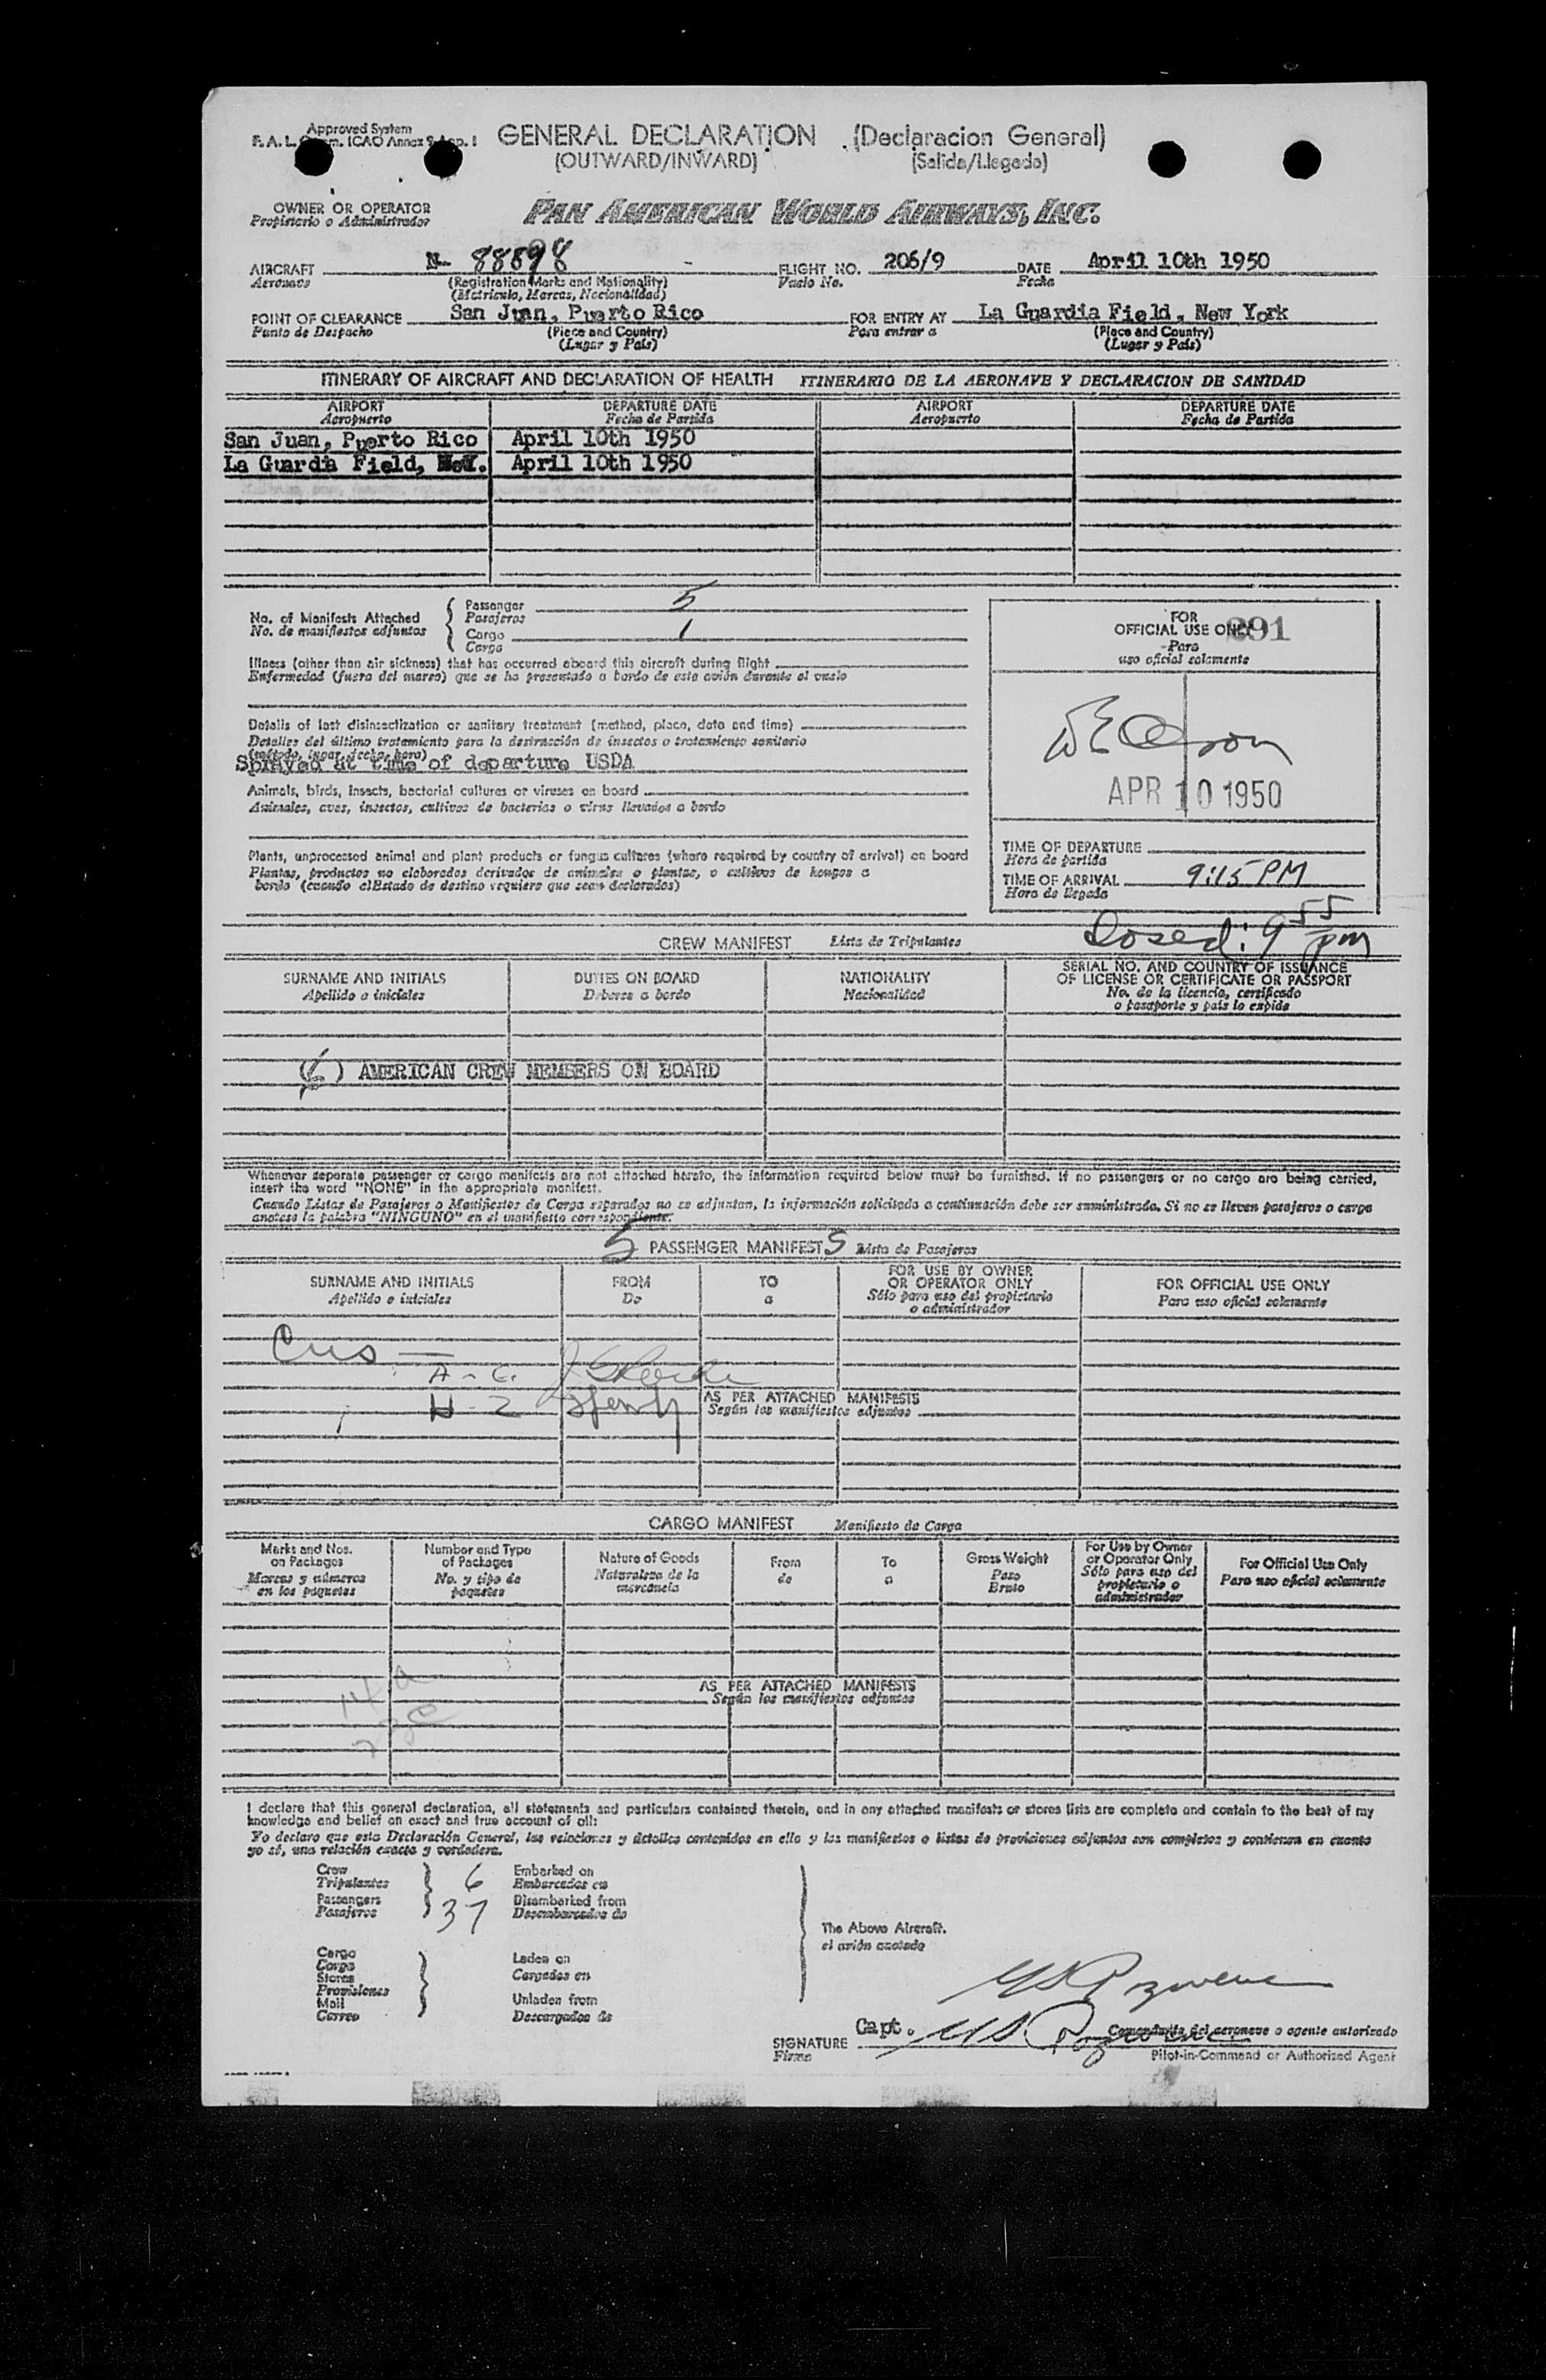 Approved System
GENERAL DECLARATION (Declaracion General)
(OUTWARD/INWARD) (Salida/Llegada)
OWNER OR OPERATOR
Propietario o Administrador
PAN AMERICAN WORLD AIRWAYS, INC.
AIRCRAFT N- 88898 FLIGHT NO. 206/9 DATE April 10th 1950
Aeronave (Registration Marks and Nationality) Vuelo No. Fecha
(Matricula, Marcas, Nacionalidad)
POINT OF CLEARANCE San Juan, Puerto Rico FOR ENTRY AT La Guardia Field, New York
Punto de Despacho (Place and Country) Para entrar a (Place and Country)
(Lugar y País) (Lugar y País)
ITINERARY OF AIRCRAFT AND DECLARATION OF HEALTH ITINERARIO DE LA AERONAVE Y DECLARACION DE SANIDAD
AIRPORT DEPARTURE DATE AIRPORT DEPARTURE DATE
Aeropuerto Fecha de Partida Aeropuerto Fecha de Partida
San Juan, Puerto Rico April 10th 1950
La Guardia Field, April 10th 1950
No. of Manifests Attached Passenger 5
No. de manifiestos adjuntos Pasajeros
Cargo 1
Carga
Illness (other than air sickness) that has occurred aboard this aircraft during flight
Enfermedad (fuera del mareo) que se ha presentado a bordo de este avión durante el vuelo
Details of last disinsectization or sanitary treatment (method, place, date and time)
Detalles del último tratamiento para la destrucción de insectos o tratamiento sanitario
(método, lugar, fecha, hora)
Sprayed at time of departure USDA
Animals, birds, insects, bacterial cultures or viruses on board
Animales, aves, insectos, cultivos de bacterias o virus llevados a bordo
Plants, unprocessed animal and plant products or fungus cultures (where required by country of arrival) on board
Plantas, productos no elaborados derivados de animales o plantas, o cultivos de hongos a
bordo (cuando el Estado de destino requiere que sean declarados)
FOR
OFFICIAL USE ONLY 291
Para
uso oficial solamente
APR 10 1950
TIME OF DEPARTURE
Hora de partida
TIME OF ARRIVAL 9:15 PM
Hora de llegada
Closed: 9 55 pm
CREW MANIFEST Lista de Tripulantes
SURNAME AND INITIALS DUTIES ON BOARD NATIONALITY SERIAL NO. AND COUNTRY OF ISSUANCE
OF LICENSE OR CERTIFICATE OR PASSPORT
Apellido e iniciales Deberes a bordo Nacionalidad No. de la licencia, certificado
o pasaporte y país lo expide
(6) AMERICAN CREW MEMBERS ON BOARD
Whenever separate passenger or cargo manifests are not attached hereto, the information required below must be furnished. If no passengers or no cargo are being carried,
insert the word "NONE" in the appropriate manifest.
Cuando Listas de Pasajeros o Manifiestos de Carga separados no se adjuntan, la información solicitada a continuación debe ser suministrada. Si no se llevan pasajeros o carga
anotese la palabra "NINGUNO" en el manifiesto correspondiente.
5 PASSENGER MANIFESTS Lista de Pasajeros
SURNAME AND INITIALS FROM TO FOR USE BY OWNER
OR OPERATOR ONLY FOR OFFICIAL USE ONLY
Apellido e iniciales De a Sólo para uso del propietario
o administrador Para uso oficial solamente
Cus —
AS PER ATTACHED MANIFESTS
Según los manifiestos adjuntos
CARGO MANIFEST Manifiesto de Carga
Marks and Nos.
on Packages
Marcas y números
en los paquetes
Number and Type
of Packages
No. y tipo de
paquetes
Nature of Goods
Naturaleza de la
mercancía
From
de
To
a
Gross Weight
Peso
Bruto
For Use by Owner
or Operator Only
Sólo para uso del
propietario o
administrador
For Official Use Only
Para uso oficial solamente
AS PER ATTACHED MANIFESTS
Según los manifiestos adjuntos
I declare that this general declaration, all statements and particulars contained therein, and in any attached manifests or stores lists are complete and contain to the best of my
knowledge and belief an exact and true account of all:
Yo declaro que esta Declaración General, las relaciones y detalles contenidos en ella y los manifiestos o listas de provisiones adjuntos son completos y contienen en cuanto
yo sé, una relación exacta y verdadera.
Crew 6 Embarked on
Tripulantes Embarcados en
Passengers 37 Disembarked from
Pasajeros Desembarcados de
The Above Aircraft.
el avión anotado
Cargo Laden on
Carga Cargados en
Stores
Provisiones
Mail Unladen from
Correo Descargados de
SIGNATURE Capt. Comandante del aeronave o agente autorizado
Firma Pilot-in-Command or Authorized Agent